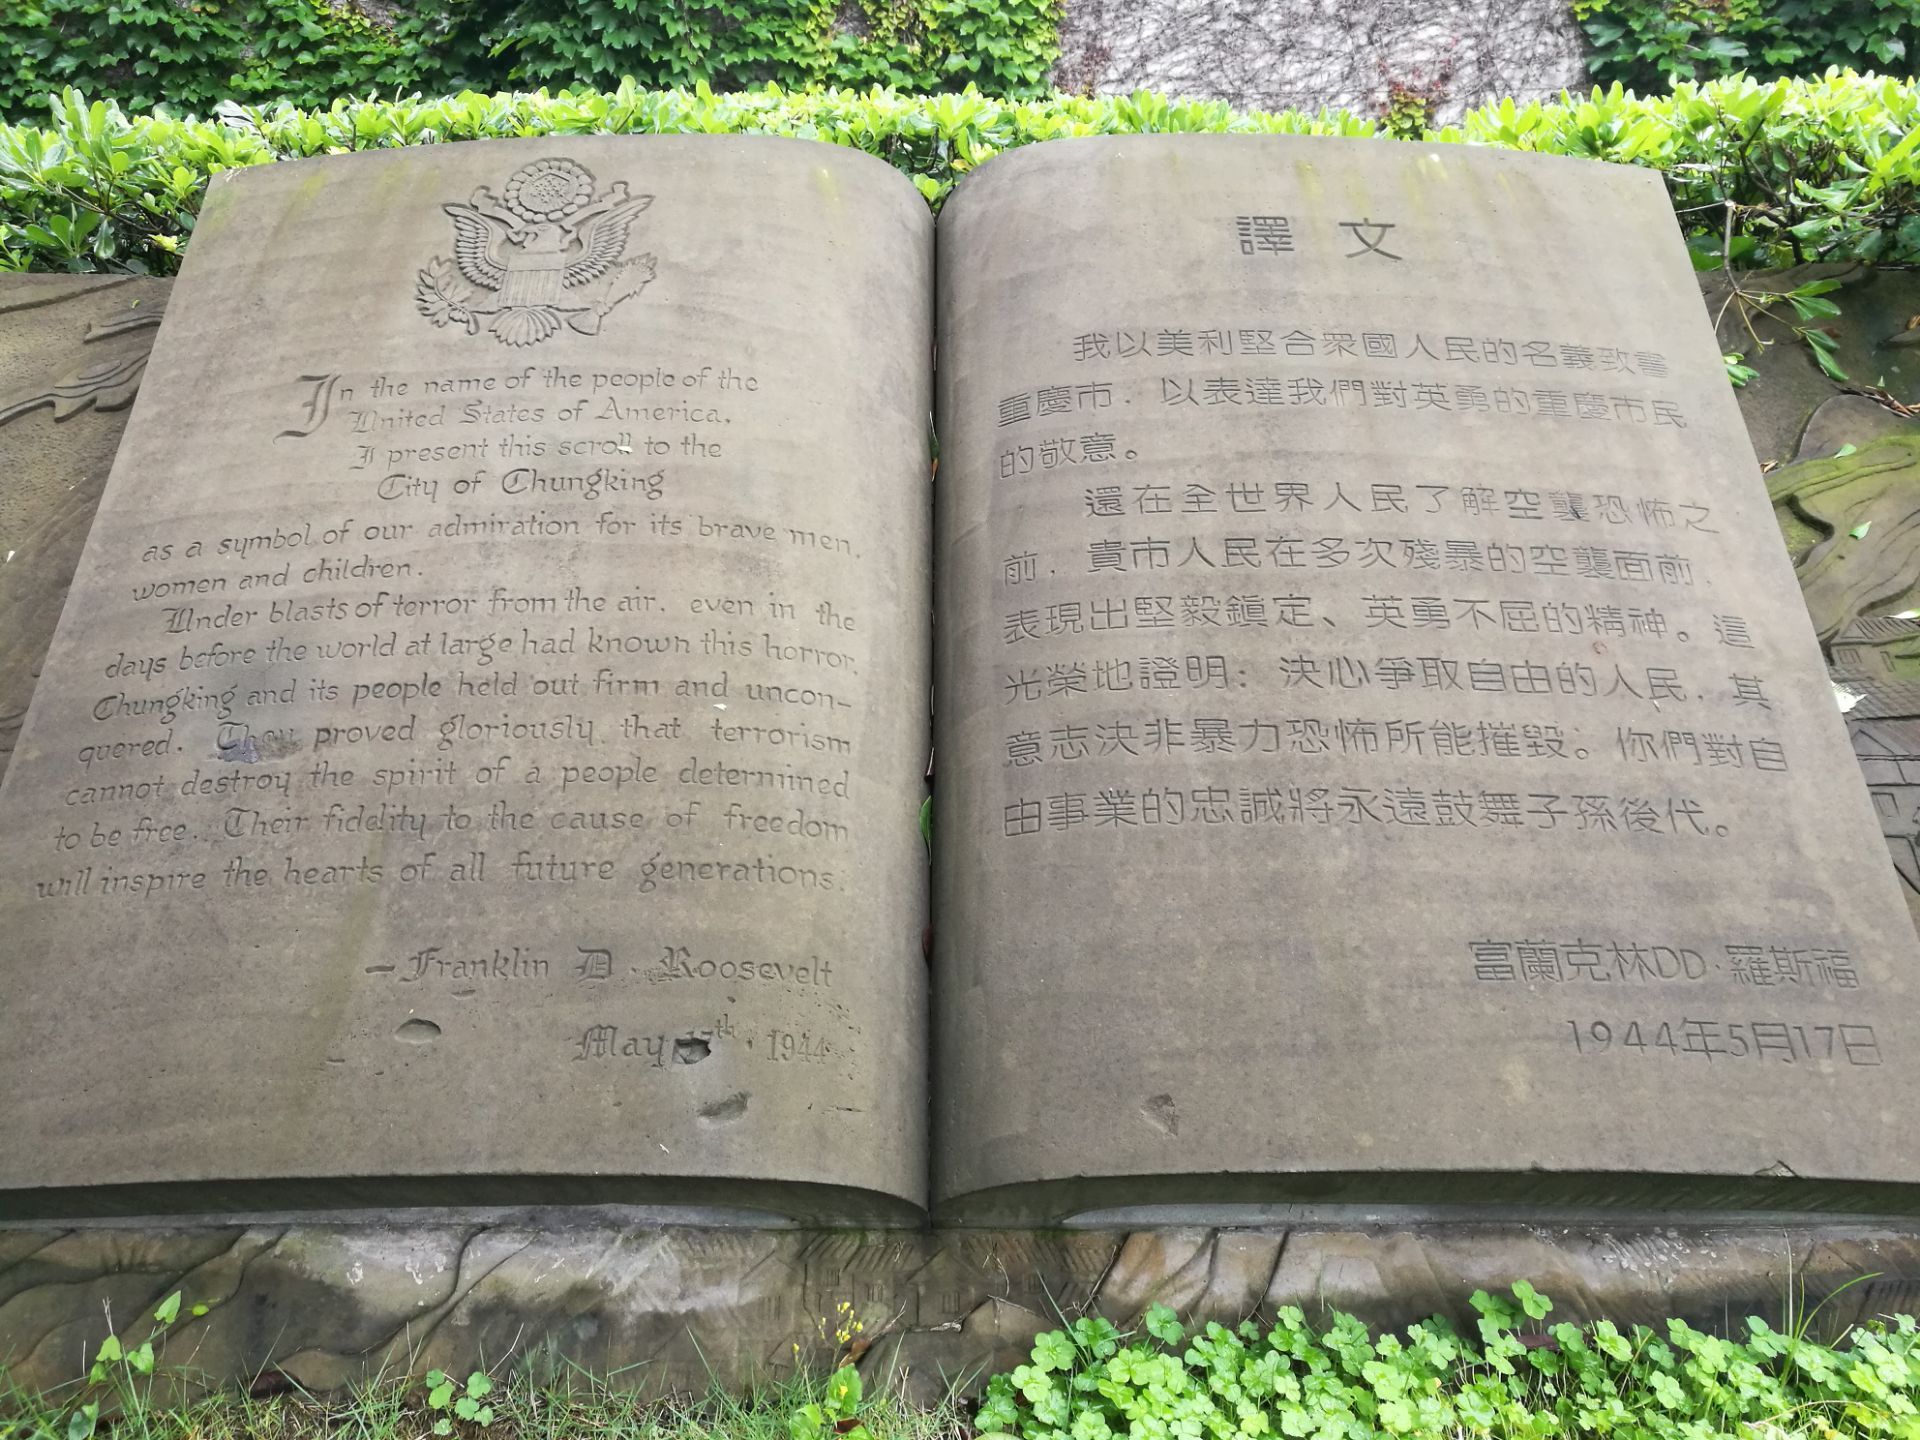 In the name of the people of the
United States of America,
I present this scroll to the
City of Chungking
as a symbol of our admiration for its brave men,
women and children.
Under blasts of terror from the air, even in the
days before the world at large had known this horror,
Chungking and its people held out firm and uncon-
quered. They proved gloriously that terrorism
cannot destroy the spirit of a people determined
to be free. Their fidelity to the cause of freedom
will inspire the hearts of all future generations.
—Franklin D. Roosevelt
May 17th, 1944
譯文
我以美利堅合衆國人民的名義致書
重慶市，以表達我們對英勇的重慶市民
的敬意。
還在全世界人民了解空襲恐怖之
前，貴市人民在多次殘暴的空襲面前，
表現出堅毅鎮定、英勇不屈的精神。這
光榮地證明：決心爭取自由的人民，其
意志決非暴力恐怖所能摧毀。你們對自
由事業的忠誠將永遠鼓舞子孫後代。
富蘭克林DD·羅斯福
1944年5月17日